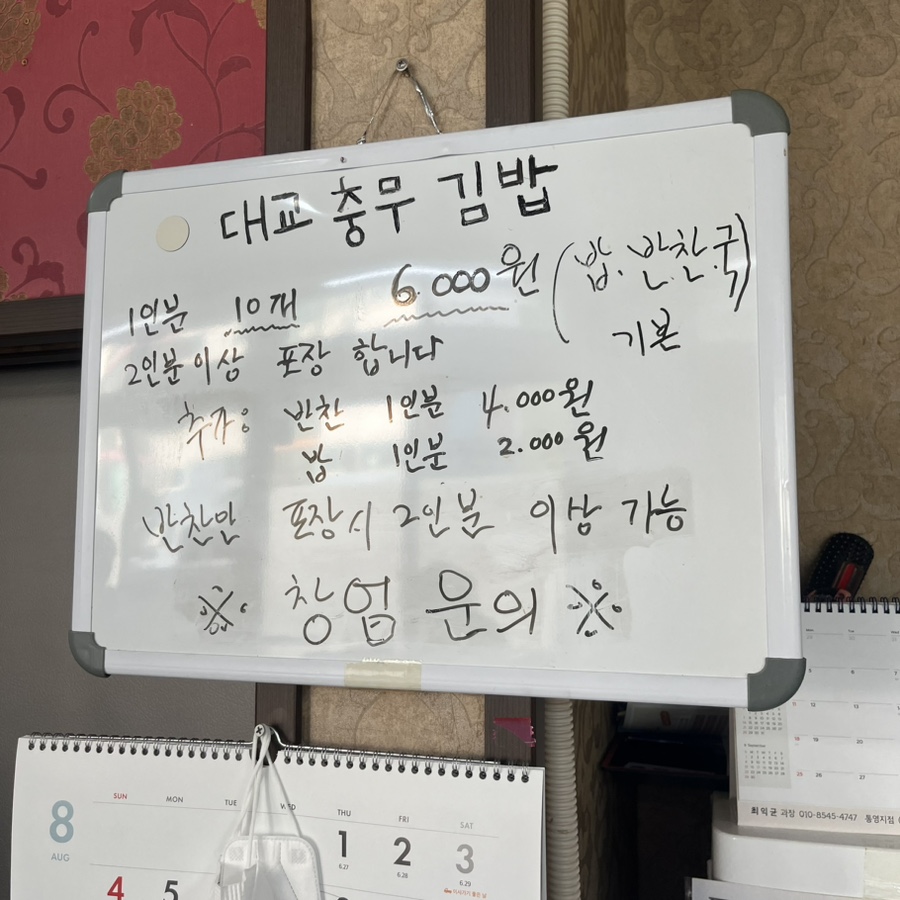 대교 충무 김밥
1인분 10개 6.000원 (밥.반찬.국)
기본
2인분 이상 포장 합니다
추가: 반찬 1인분 4.000원
밥 1인분 2.000원
반찬만 포장시 2인분 이상 가능
※ 창업 문의 ※
8
AUG
SUN MON TUE WED THU FRI SAT
1 2 3
6.27 6.28 6.29
4 5
5 6
11 12 13
18 19 20
25 26 27
최익균 과장 010-8545-4747 통영지점